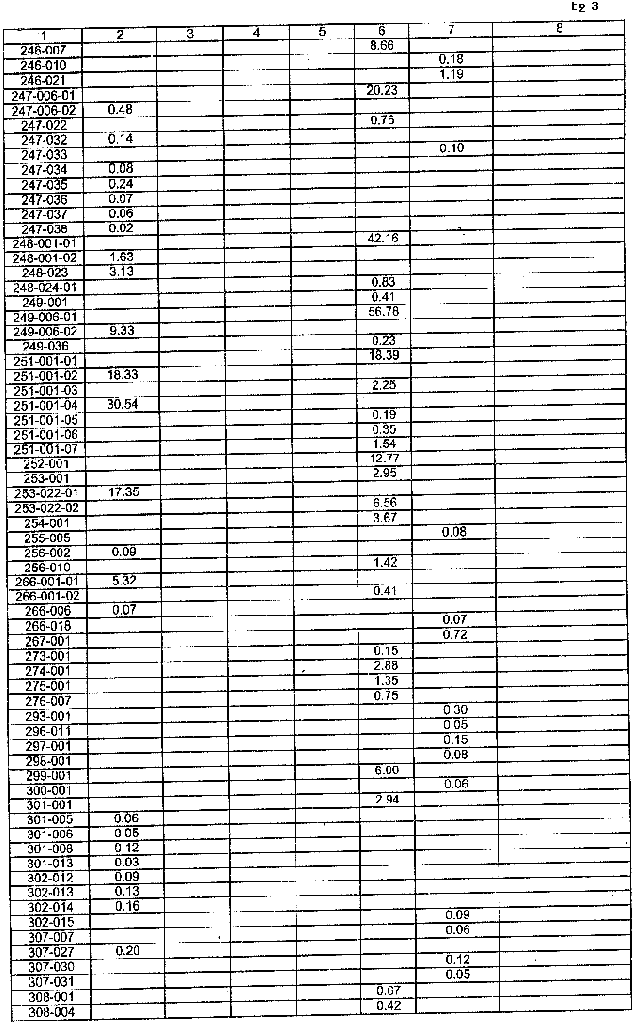 Eg 3
1 2 3 4 5 6 7 8
246-007 8.66
246-010 0.18
246-021 1.19
247-006-01 20.23
247-006-02 0.48
247-022 0.75
247-032 0.14
247-033 0.10
247-034 0.08
247-035 0.24
247-036 0.07
247-037 0.06
247-038 0.02
248-001-01 42.16
248-001-02 1.63
248-023 3.13
248-024-01 0.83
249-001 0.41
249-006-01 56.78
249-006-02 9.33
249-036 0.23
251-001-01 18.39
251-001-02 18.33
251-001-03 2.25
251-001-04 30.54
251-001-05 0.19
251-001-06 0.35
251-001-07 1.54
252-001 12.77
253-001 2.95
253-022-01 17.35
253-022-02 6.56
254-001 3.67
255-005 0.08
256-002 0.09
256-010 1.42
266-001-01 5.32
266-001-02 0.41
266-006 0.07
266-018 0.07
267-001 0.72
273-001 0.15
274-001 2.88
275-001 1.35
276-007 0.75
293-001 0.30
296-011 0.05
297-001 0.15
298-001 0.08
299-001 6.00
300-001 0.06
301-001 2.94
301-005 0.06
301-006 0.05
301-008 0.12
301-013 0.03
302-012 0.09
302-013 0.13
302-014 0.16
302-015 0.09
307-007 0.06
307-027 0.20
307-030 0.12
307-031 0.05
308-001 0.67
308-004 0.42